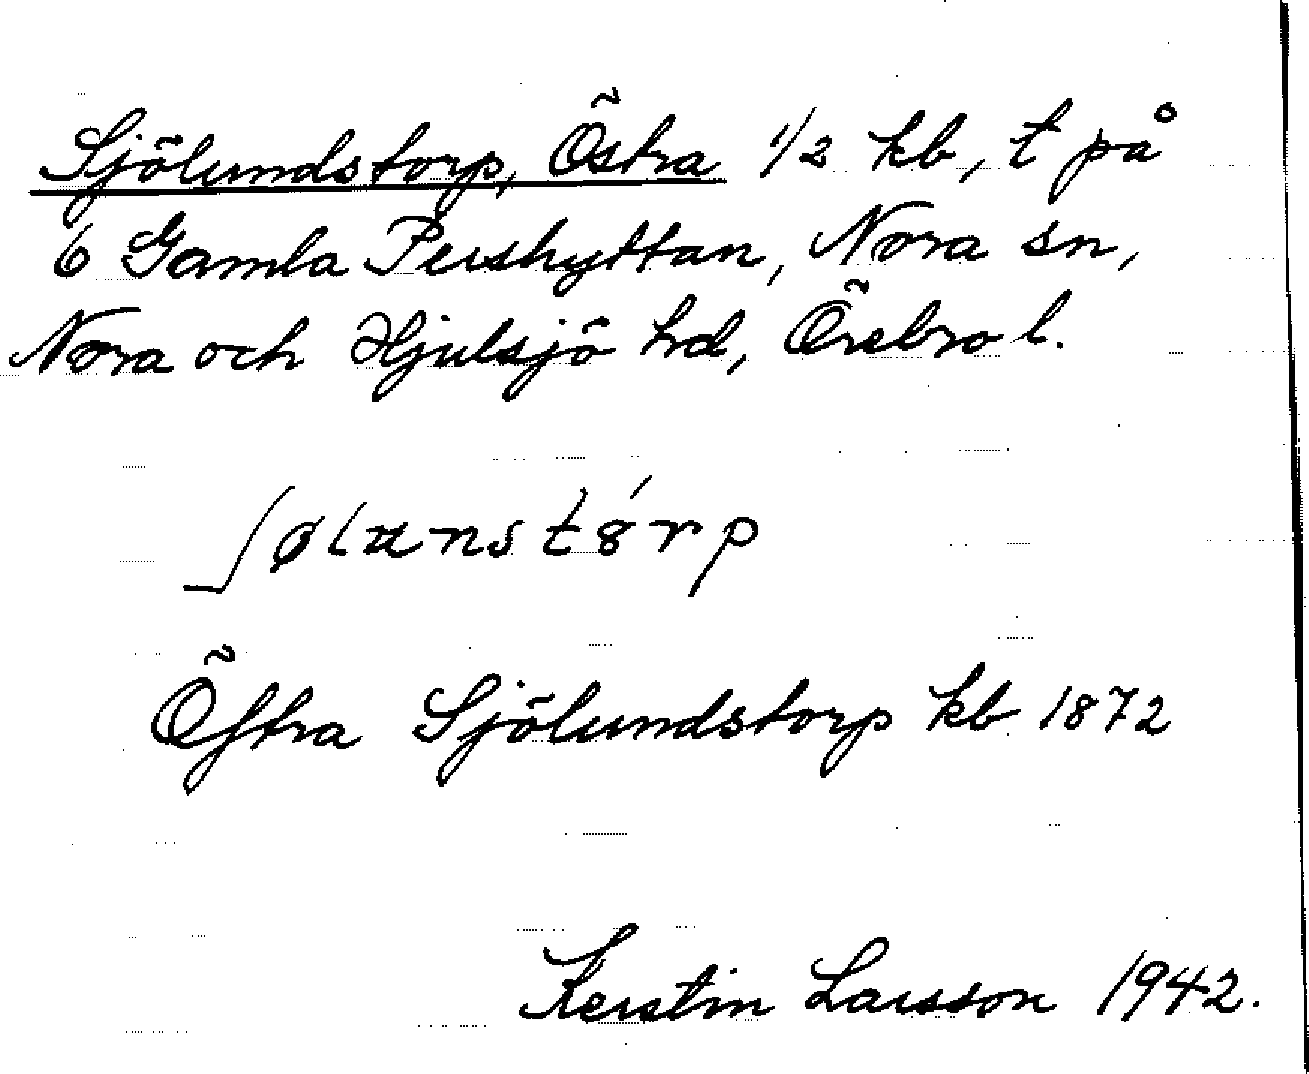 Sjölundstorp, Östra 1/2 kb, t på
6 Gamla Pershyttan, Nora sn,
Nora och Hjulsjö hd, Örebro l.
Öftra Sjölundstorp kb 1872
Kerstin Larsson 1942.